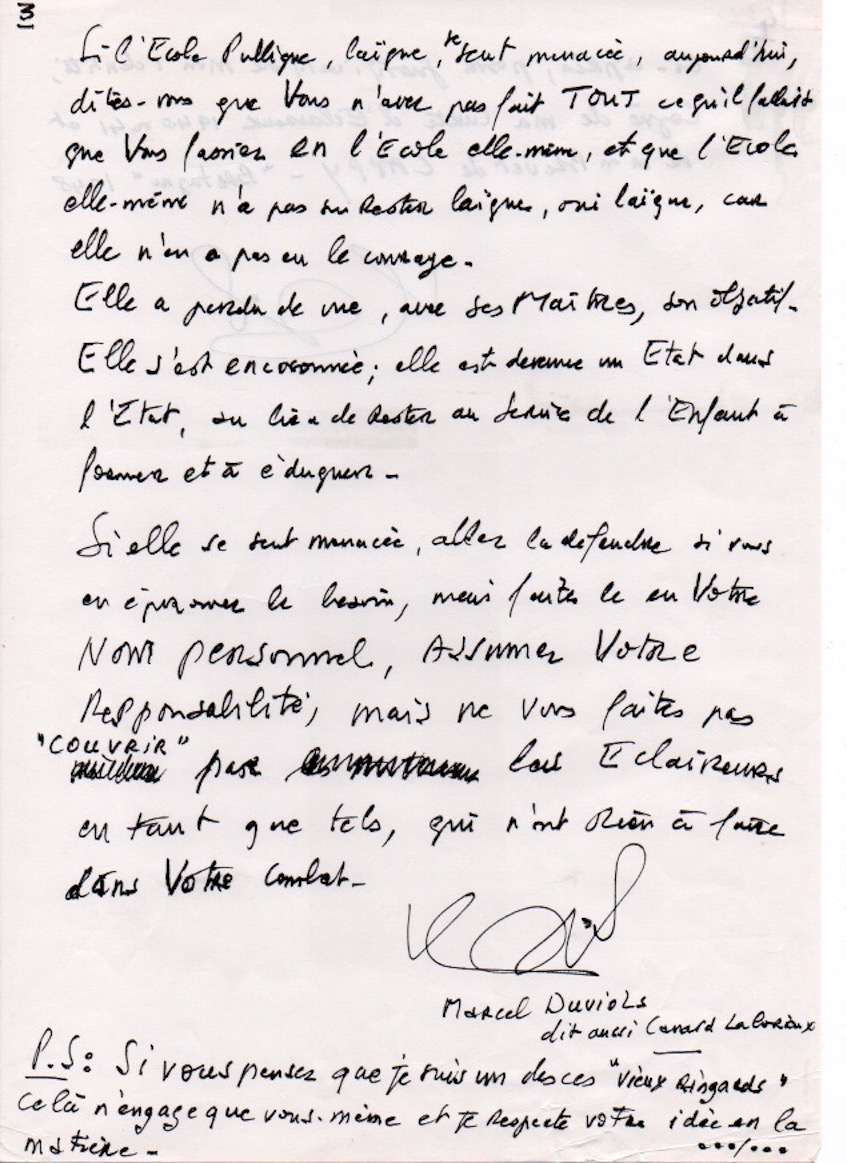 3
Si l'Ecole Publique, laïque, se sent menacée, aujourd'hui,
dites-vous que Vous n'avez pas fait TOUT ce qu'il fallait
que Vous fassiez en l'Ecole elle-même, et que l'Ecole
elle-même n'a pas su Rester laïque, oui laïque, car
elle n'en a pas eu le courage.
Elle a perdu de vue, avec ses Maîtres, son objectif.
Elle s'est encoconnée; elle est devenue un Etat dans
l'Etat, au lieu de Rester au Service de l'Enfant à
former et à éduquer.
Si elle se sent menacée, allez la défendre si vous
en éprouvez le besoin, mais faites le en Votre
Nom personnel, Assumez Votre
Responsabilité, mais ne vous faites pas
"COUVRIR" par les Eclaireurs
en tant que tels, qui n'ont Rien à faire
dans Votre Combat.
Marcel Duviols
dit aussi Canard Laborieux
P.S: Si vous pensez que je suis un de ces "vieux Ringards"
Celà n'engage que vous-même et je Respecte votre idée en la
matière.
.../...